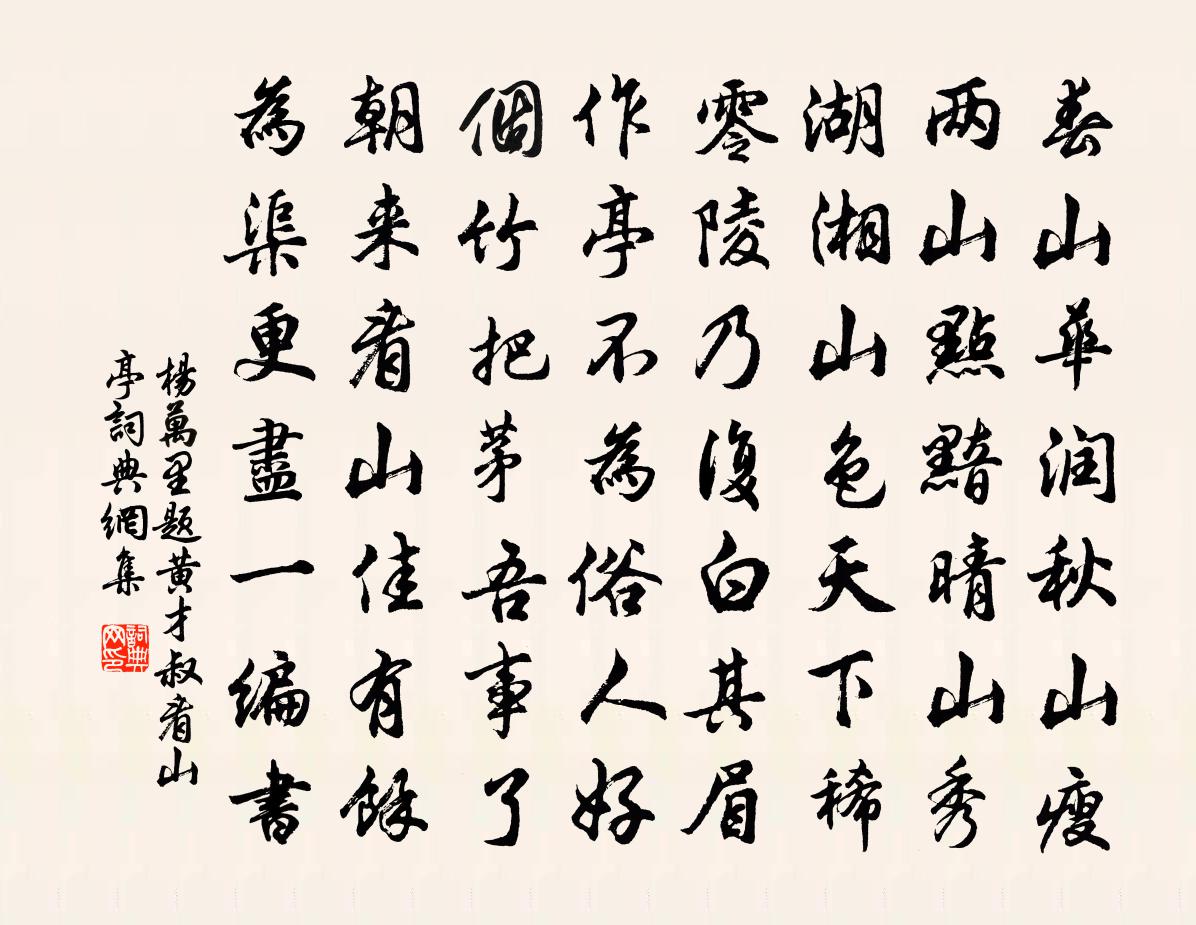 春山華润秋山瘦
两山點黯晴山秀
湖湘山色天下稀
零陵乃復白其眉
作亭不為俗人好
個竹把茅吾事了
朝来看山佳有餘
為渠更盡一编書
楊萬里题黄才叔看山
亭詞典網集
詞典网印